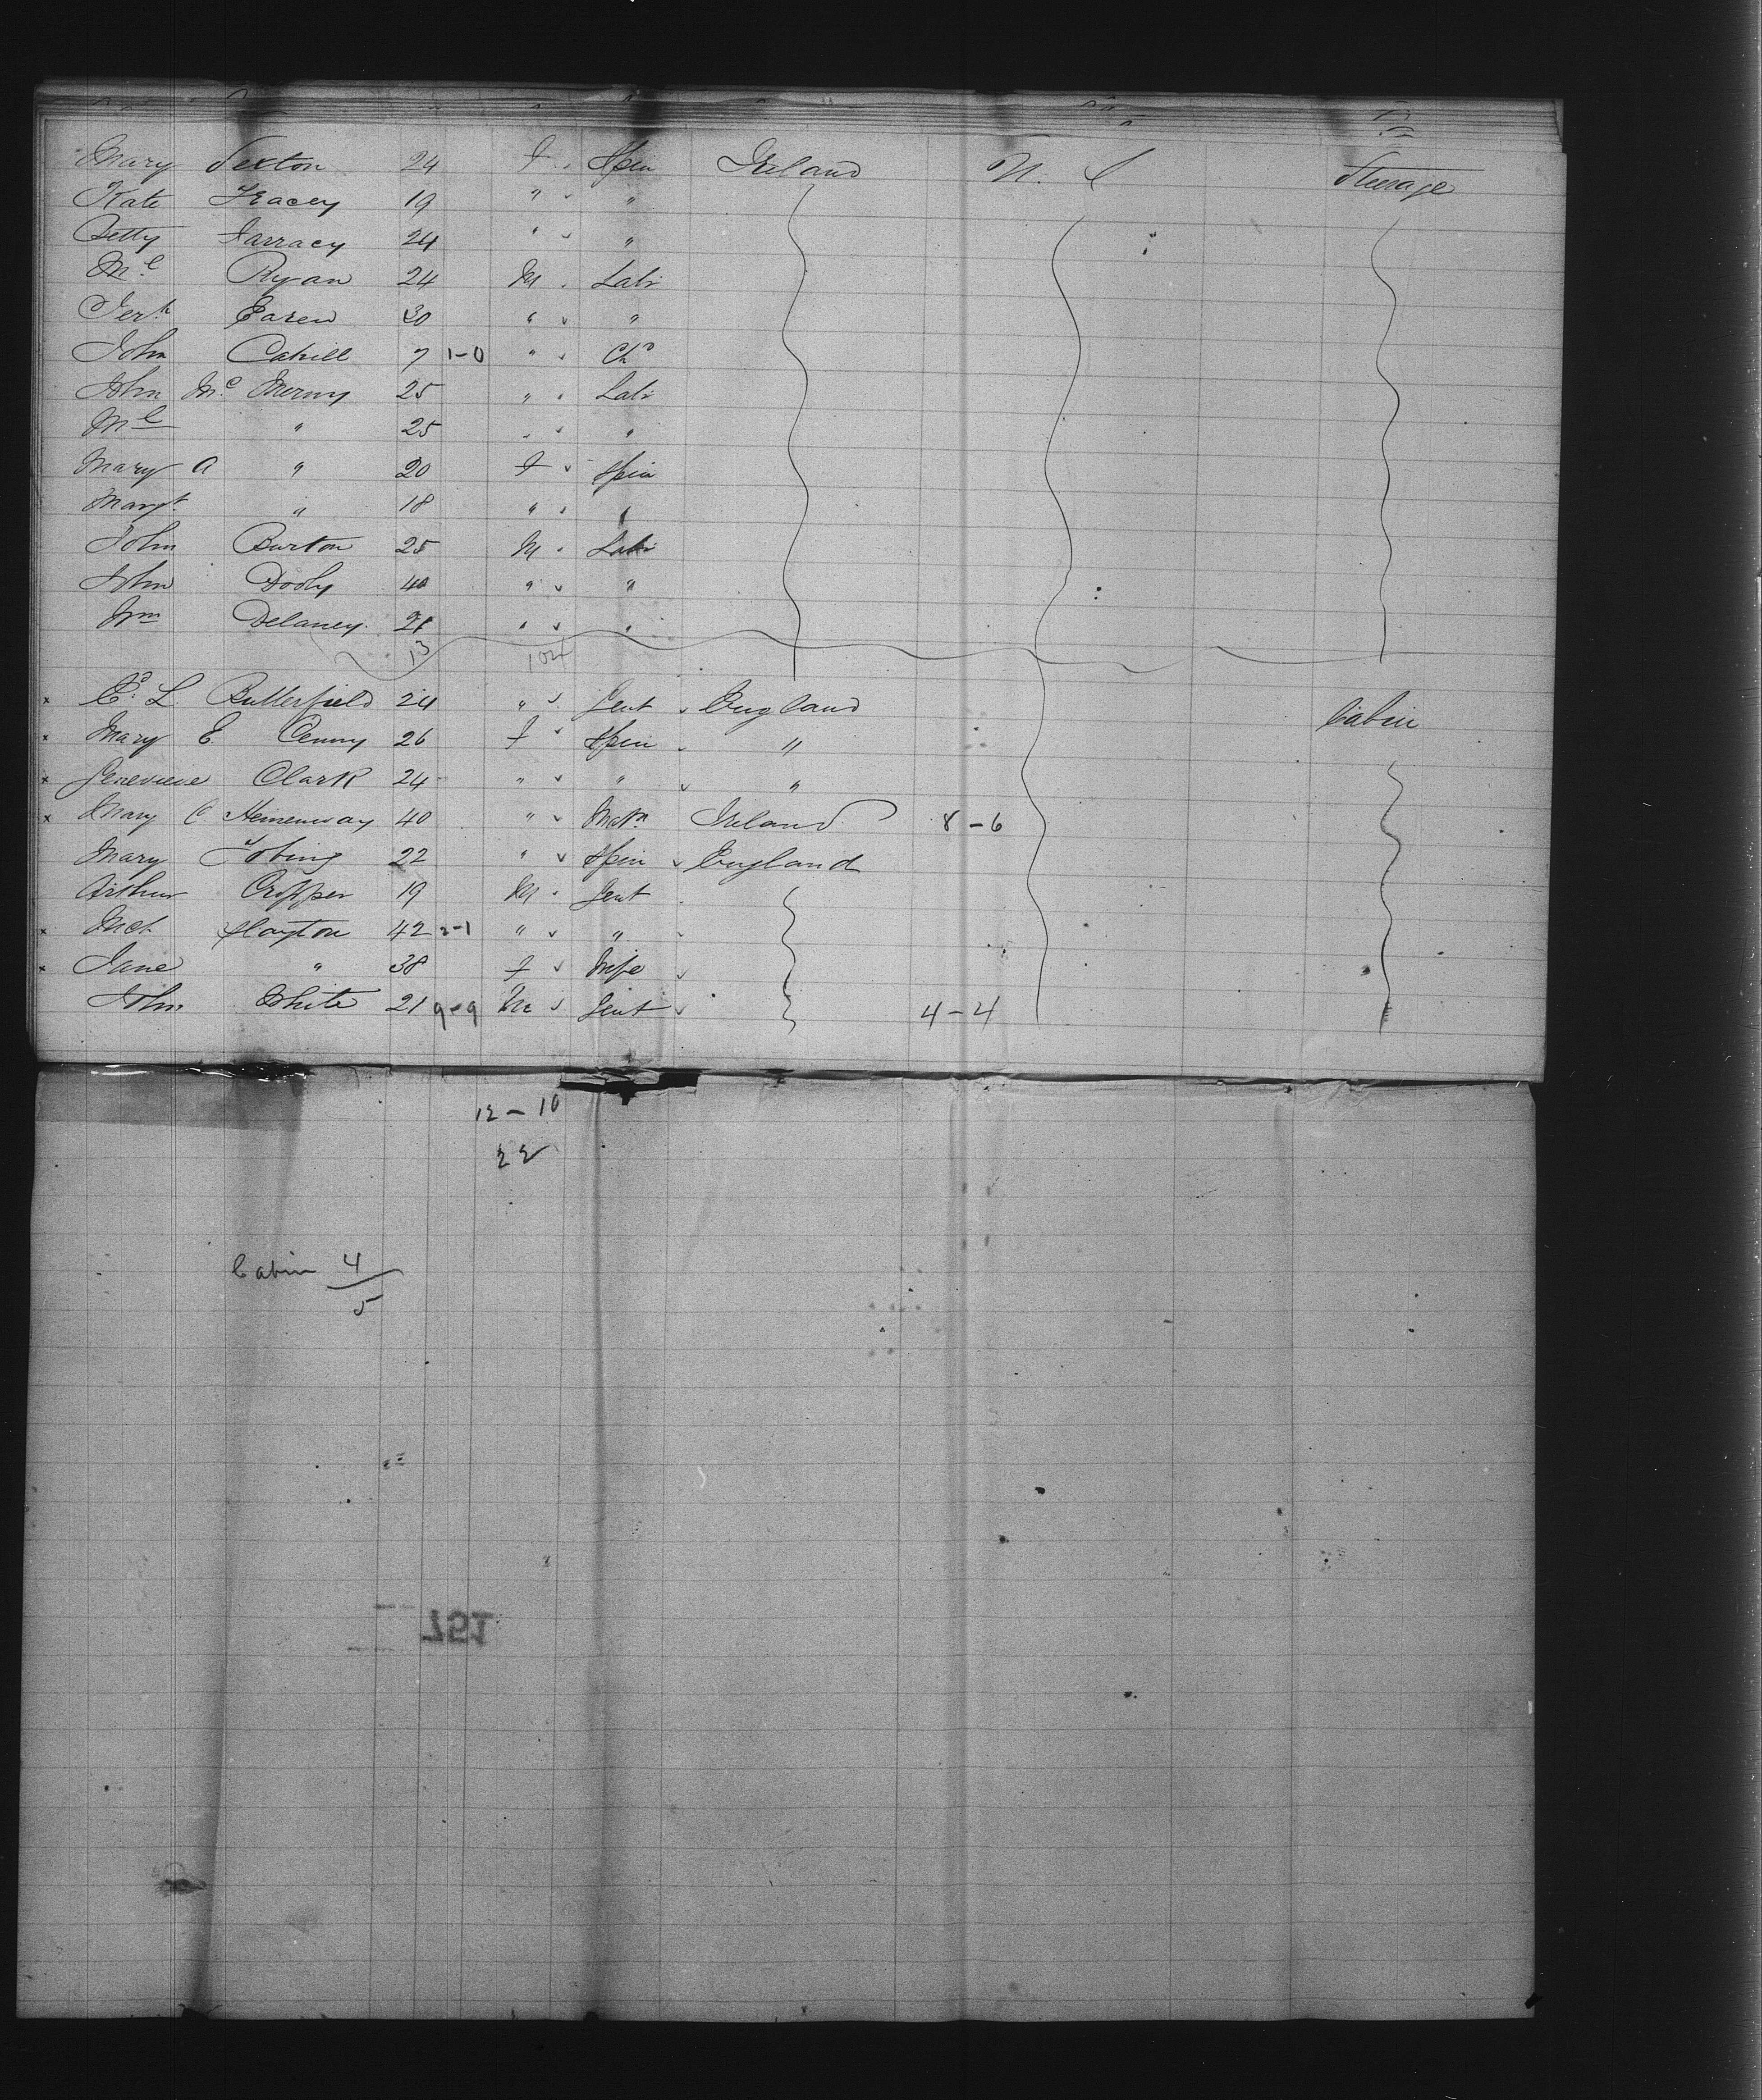 Mary Sexton 24 F Spin Ireland U. S Steerage
Kate Tracey 19 " "
Betty Farracy 24 " "
Ml Ryan 24 M Labr
Jerh 30 " "
John Cahill 7 1-0 " Chd
John Mc Inerny 25 " Labr
Ml " 25 " "
Mary A " 20 F Spin
Margt " 18 " "
John Burton 25 M Labr
John Dooly 40 " "
Wm Delaney 21 " "
13 104
x L. Butterfield 24 " Gent England Cabin
x Mary E. 26 F Spin "
x Genevieve Clark 24 " " "
x Mary C Hemenway 40 " Matn Ireland 8-6
Mary Tobing 22 " Spin England
Arthur Cropper 19 M Gent
x Slayton 42 2-1 " "
x Jane " 38 F Wife
John White 21 9-9 M Gent 4-4
12-10
22
Cabin 4
5
751